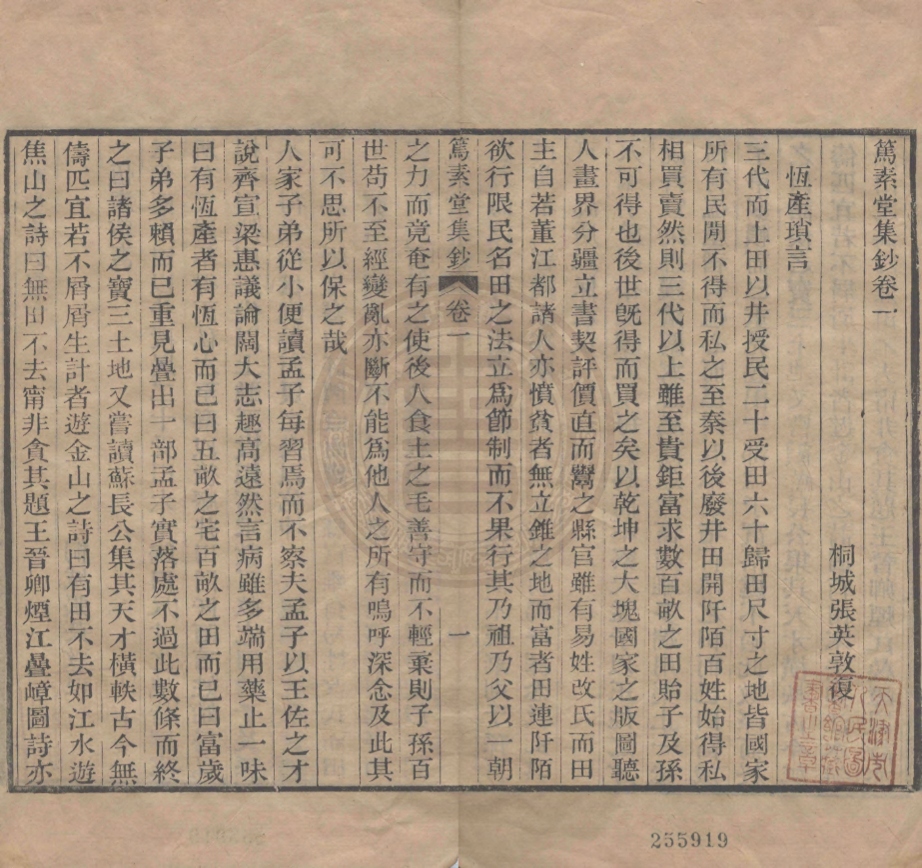 篤素堂集鈔卷一
桐城張英敦復
恆產瑣言
三代而上田以井授民二十受田六十歸田尺寸之地皆國家
所有民閒不得而私之至秦以後廢井田開阡陌百姓始得私
相買賣然則三代以上雖至貴鉅富求數百畝之田貽子及孫
不可得也後世旣得而買之矣以乾坤之大塊國家之版圖聽
人畫界分疆立書契評價直而鬻之縣官雖有易姓改氏而田
主自若董江都諸人亦憤貧者無立錐之地而富者田連阡陌
欲行限民名田之法立爲節制而不果行其乃祖乃父以一朝
篤素堂集鈔
卷一
一
之力而竟奄有之使後人食土之毛善守而不輕棄則子孫百
世苟不至經變亂亦斷不能爲他人之所有嗚呼深念及此其
可不思所以保之哉
人家子弟從小便讀孟子每習焉而不察夫孟子以王佐之才
說齊宣梁惠議論闊大志趣高遠然言病雖多端用藥止一味
曰有恆產者有恆心而已曰五畝之宅百畝之田而已曰富歲
子弟多賴而已重見疊出一部孟子實落處不過此數條而終
之曰諸侯之寶三土地又嘗讀蘇長公集其天才橫軼古今無
儔匹宜若不屑屑生計者遊金山之詩曰有田不去如江水遊
焦山之詩曰無田不去甯非貪其題王晉卿煙江疊嶂圖詩亦
255919